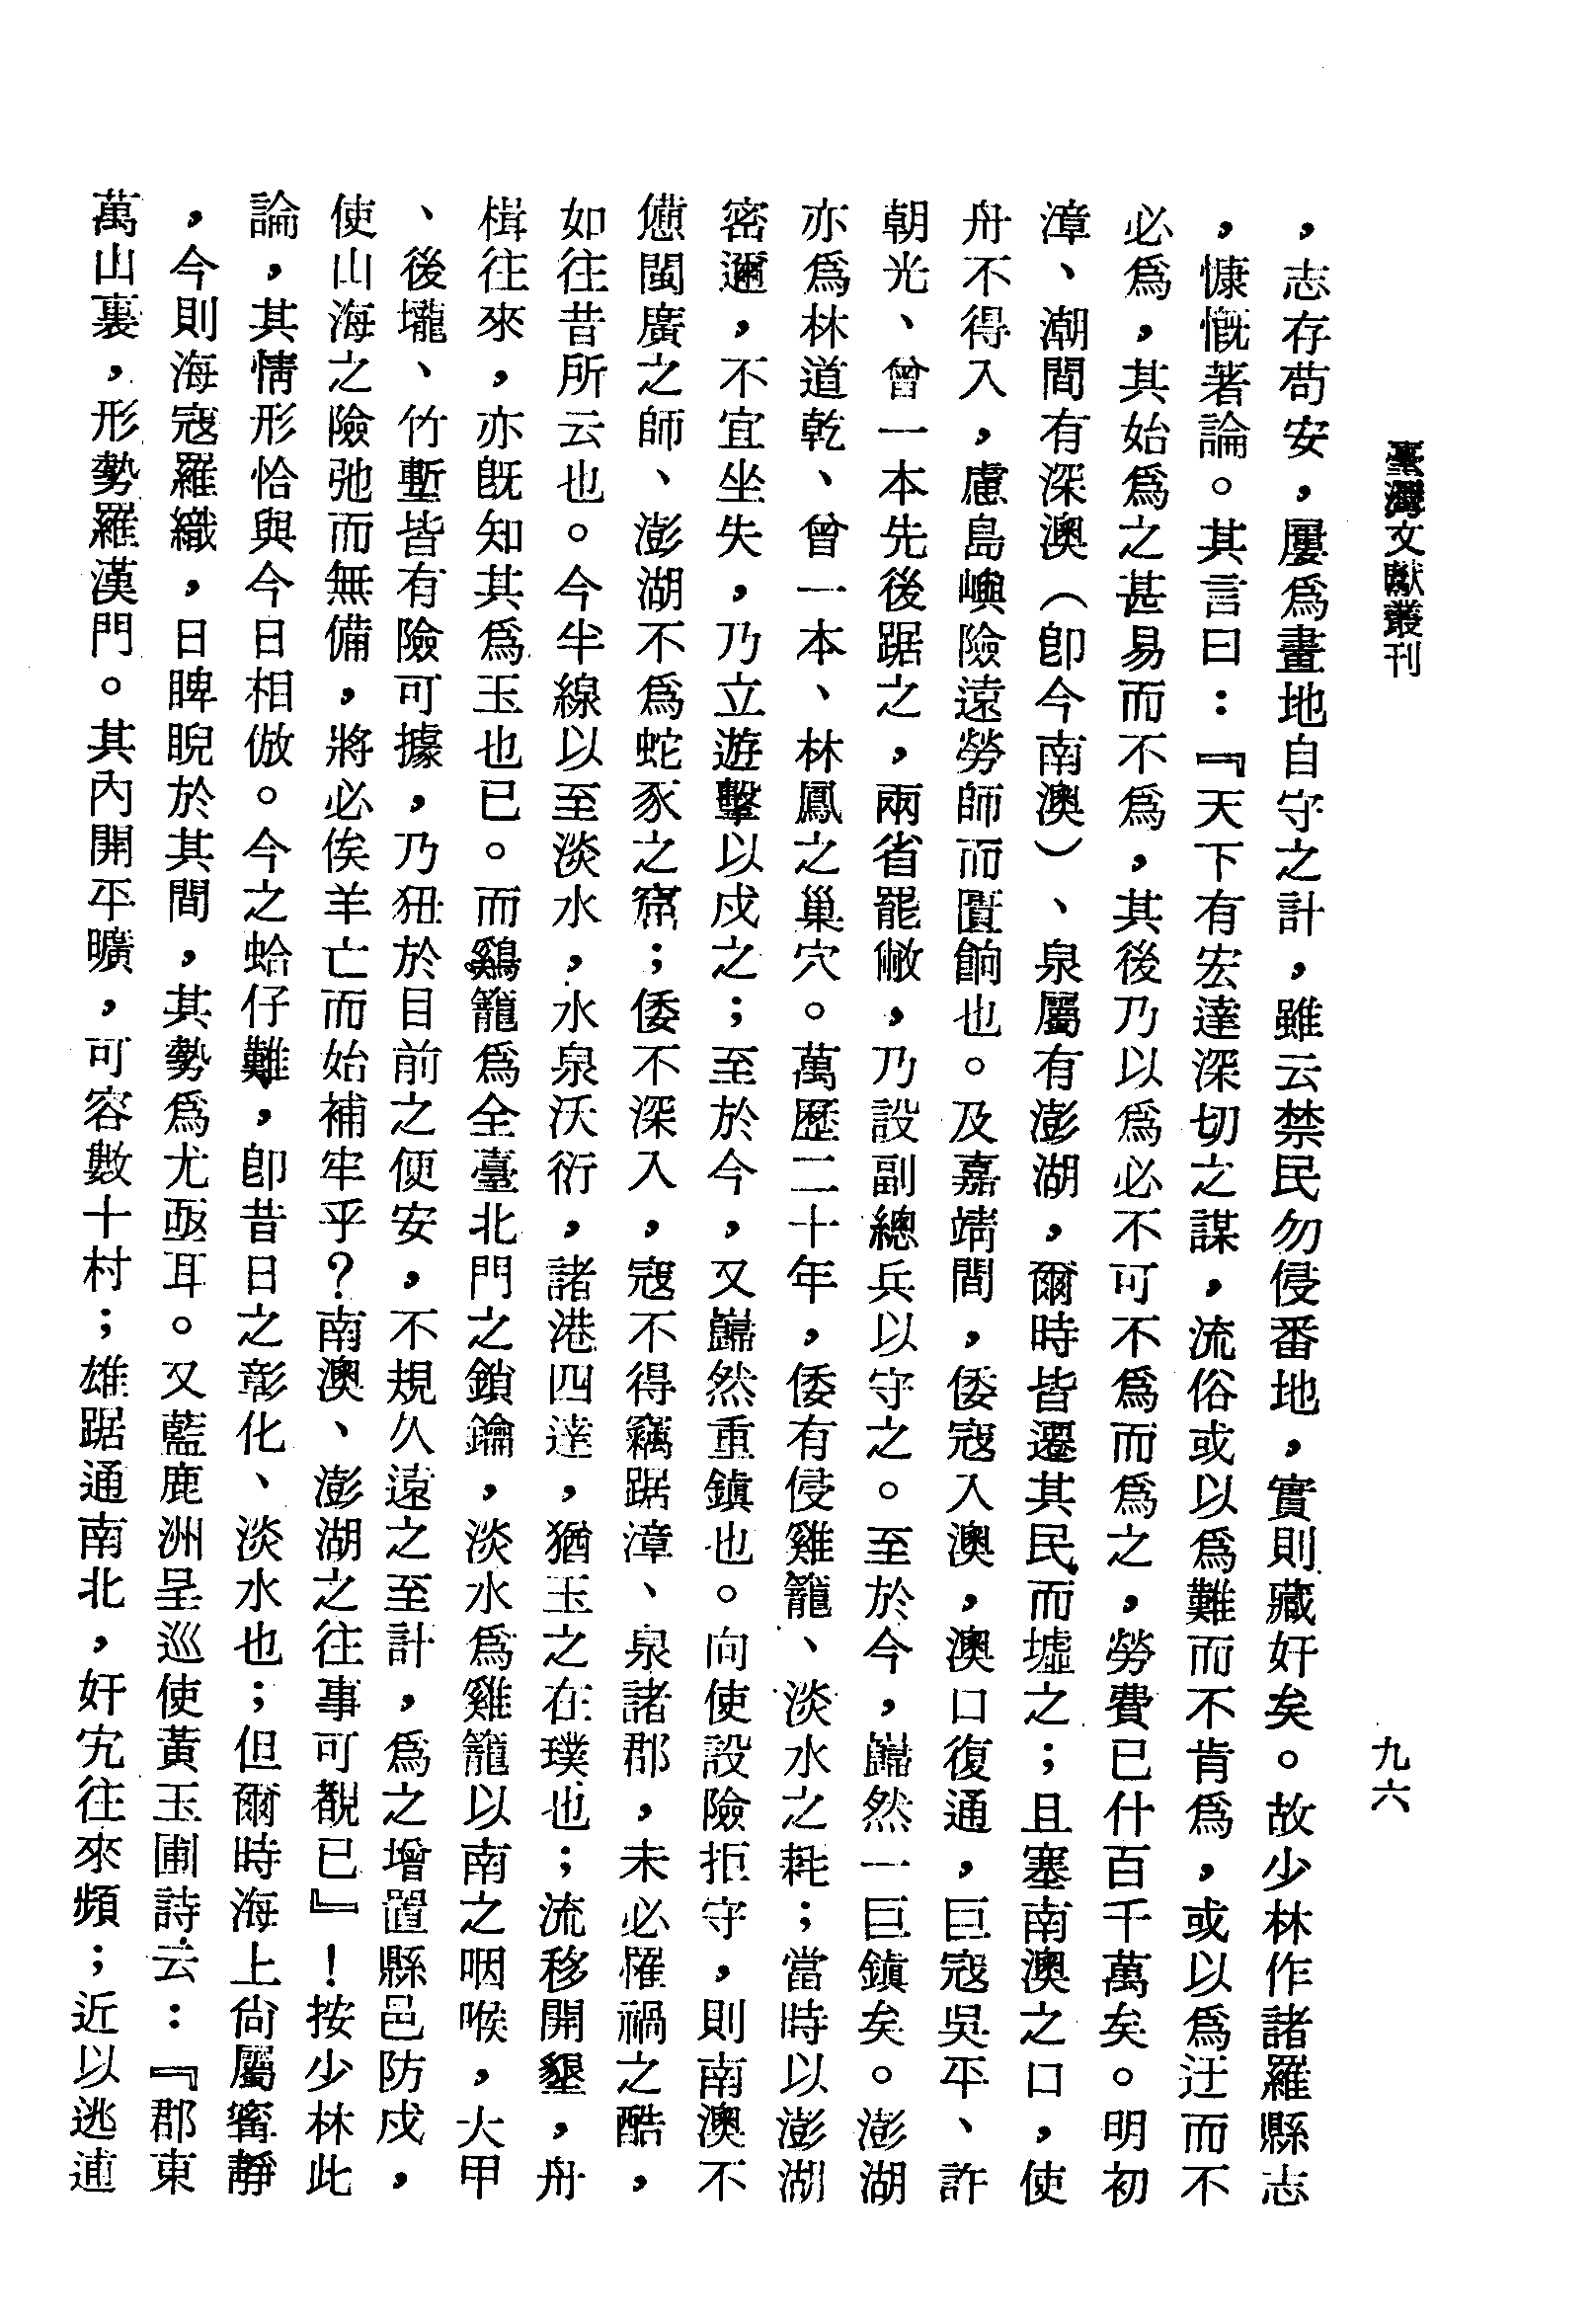 臺灣文獻叢刊
九六
，志存苟安，屢爲畫地自守之計，雖云禁民勿侵番地，實則藏奸矣。故少林作諸羅縣志
，慷慨著論。其言曰：『天下有宏達深切之謀，流俗或以爲難而不肯爲，或以爲迂而不
必爲，其始爲之甚易而不爲，其後乃以爲必不可不爲而爲之，勞費已什百千萬矣。明初
漳、潮間有深澳（卽今南澳）、泉屬有澎湖，爾時皆遷其民而墟之；且塞南澳之口，使
舟不得入，慮島嶼險遠勞師而匱餉也。及嘉靖間，倭寇入澳，澳口復通，巨寇吳平、許
朝光、曾一本先後踞之，兩省罷敝，乃設副總兵以守之。至於今，巋然一巨鎮矣。澎湖
亦爲林道乾、曾一本、林鳳之巢穴。萬歷二十年，倭有侵雞籠、淡水之耗；當時以澎湖
密邇，不宜坐失，乃立遊擊以戍之；至於今，又巋然重鎮也。向使設險拒守，則南澳不
憊閩廣之師、澎湖不爲蛇豕之窟；倭不深入，寇不得竊踞漳、泉諸郡，未必罹禍之酷，
如往昔所云也。今半線以至淡水，水泉沃衍，諸港四達，猶玉之在璞也；流移開墾，舟
楫往來，亦旣知其爲玉也已。而鷄籠爲全臺北門之鎖鑰，淡水爲雞籠以南之咽喉，大甲
、後壠、竹塹皆有險可據，乃狃於目前之便安，不規久遠之至計，爲之增置縣邑防戍，
使山海之險弛而無備，將必俟羊亡而始補牢乎？南澳、澎湖之往事可覩已』！按少林此
論，其情形恰與今日相倣。今之蛤仔難，卽昔日之彰化、淡水也；但爾時海上尙屬甯靜
，今則海寇羅織，日睥睨於其間，其勢爲尤亟耳。又藍鹿洲呈巡使黃玉圃詩云：『郡東
萬山裏，形勢羅漢門。其內開平曠，可容數十村；雄踞通南北，奸宄往來頻；近以逃逋